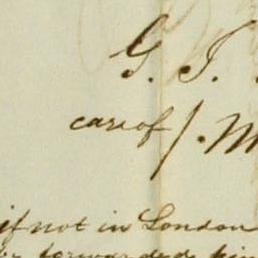 G. T.
care of J. M
if not in London
be forwarded